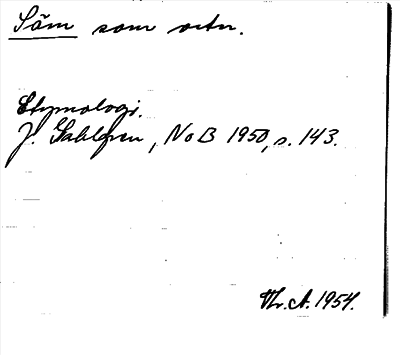 Söm som ortn.
Etymologi.
J. Sahlgren, NoB 1950, s. 143.
Vr. A. 1954.